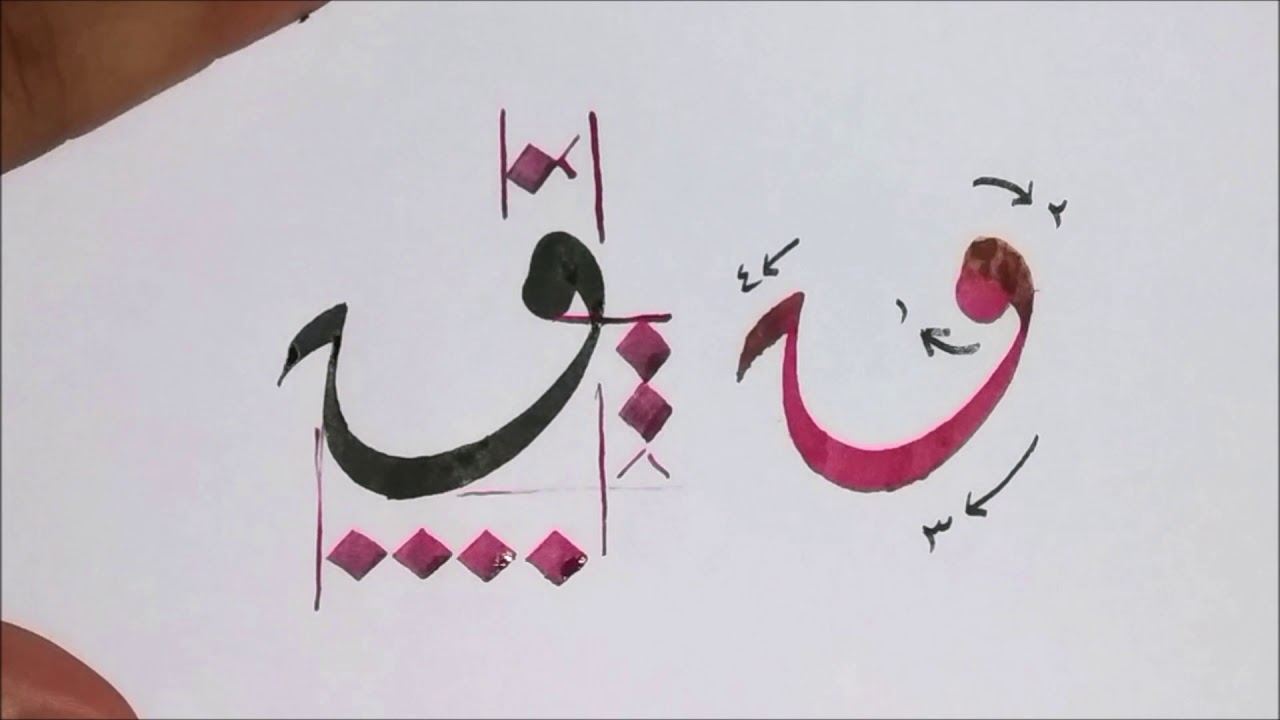 ٢
ٯ ٯ
٤
١
٣